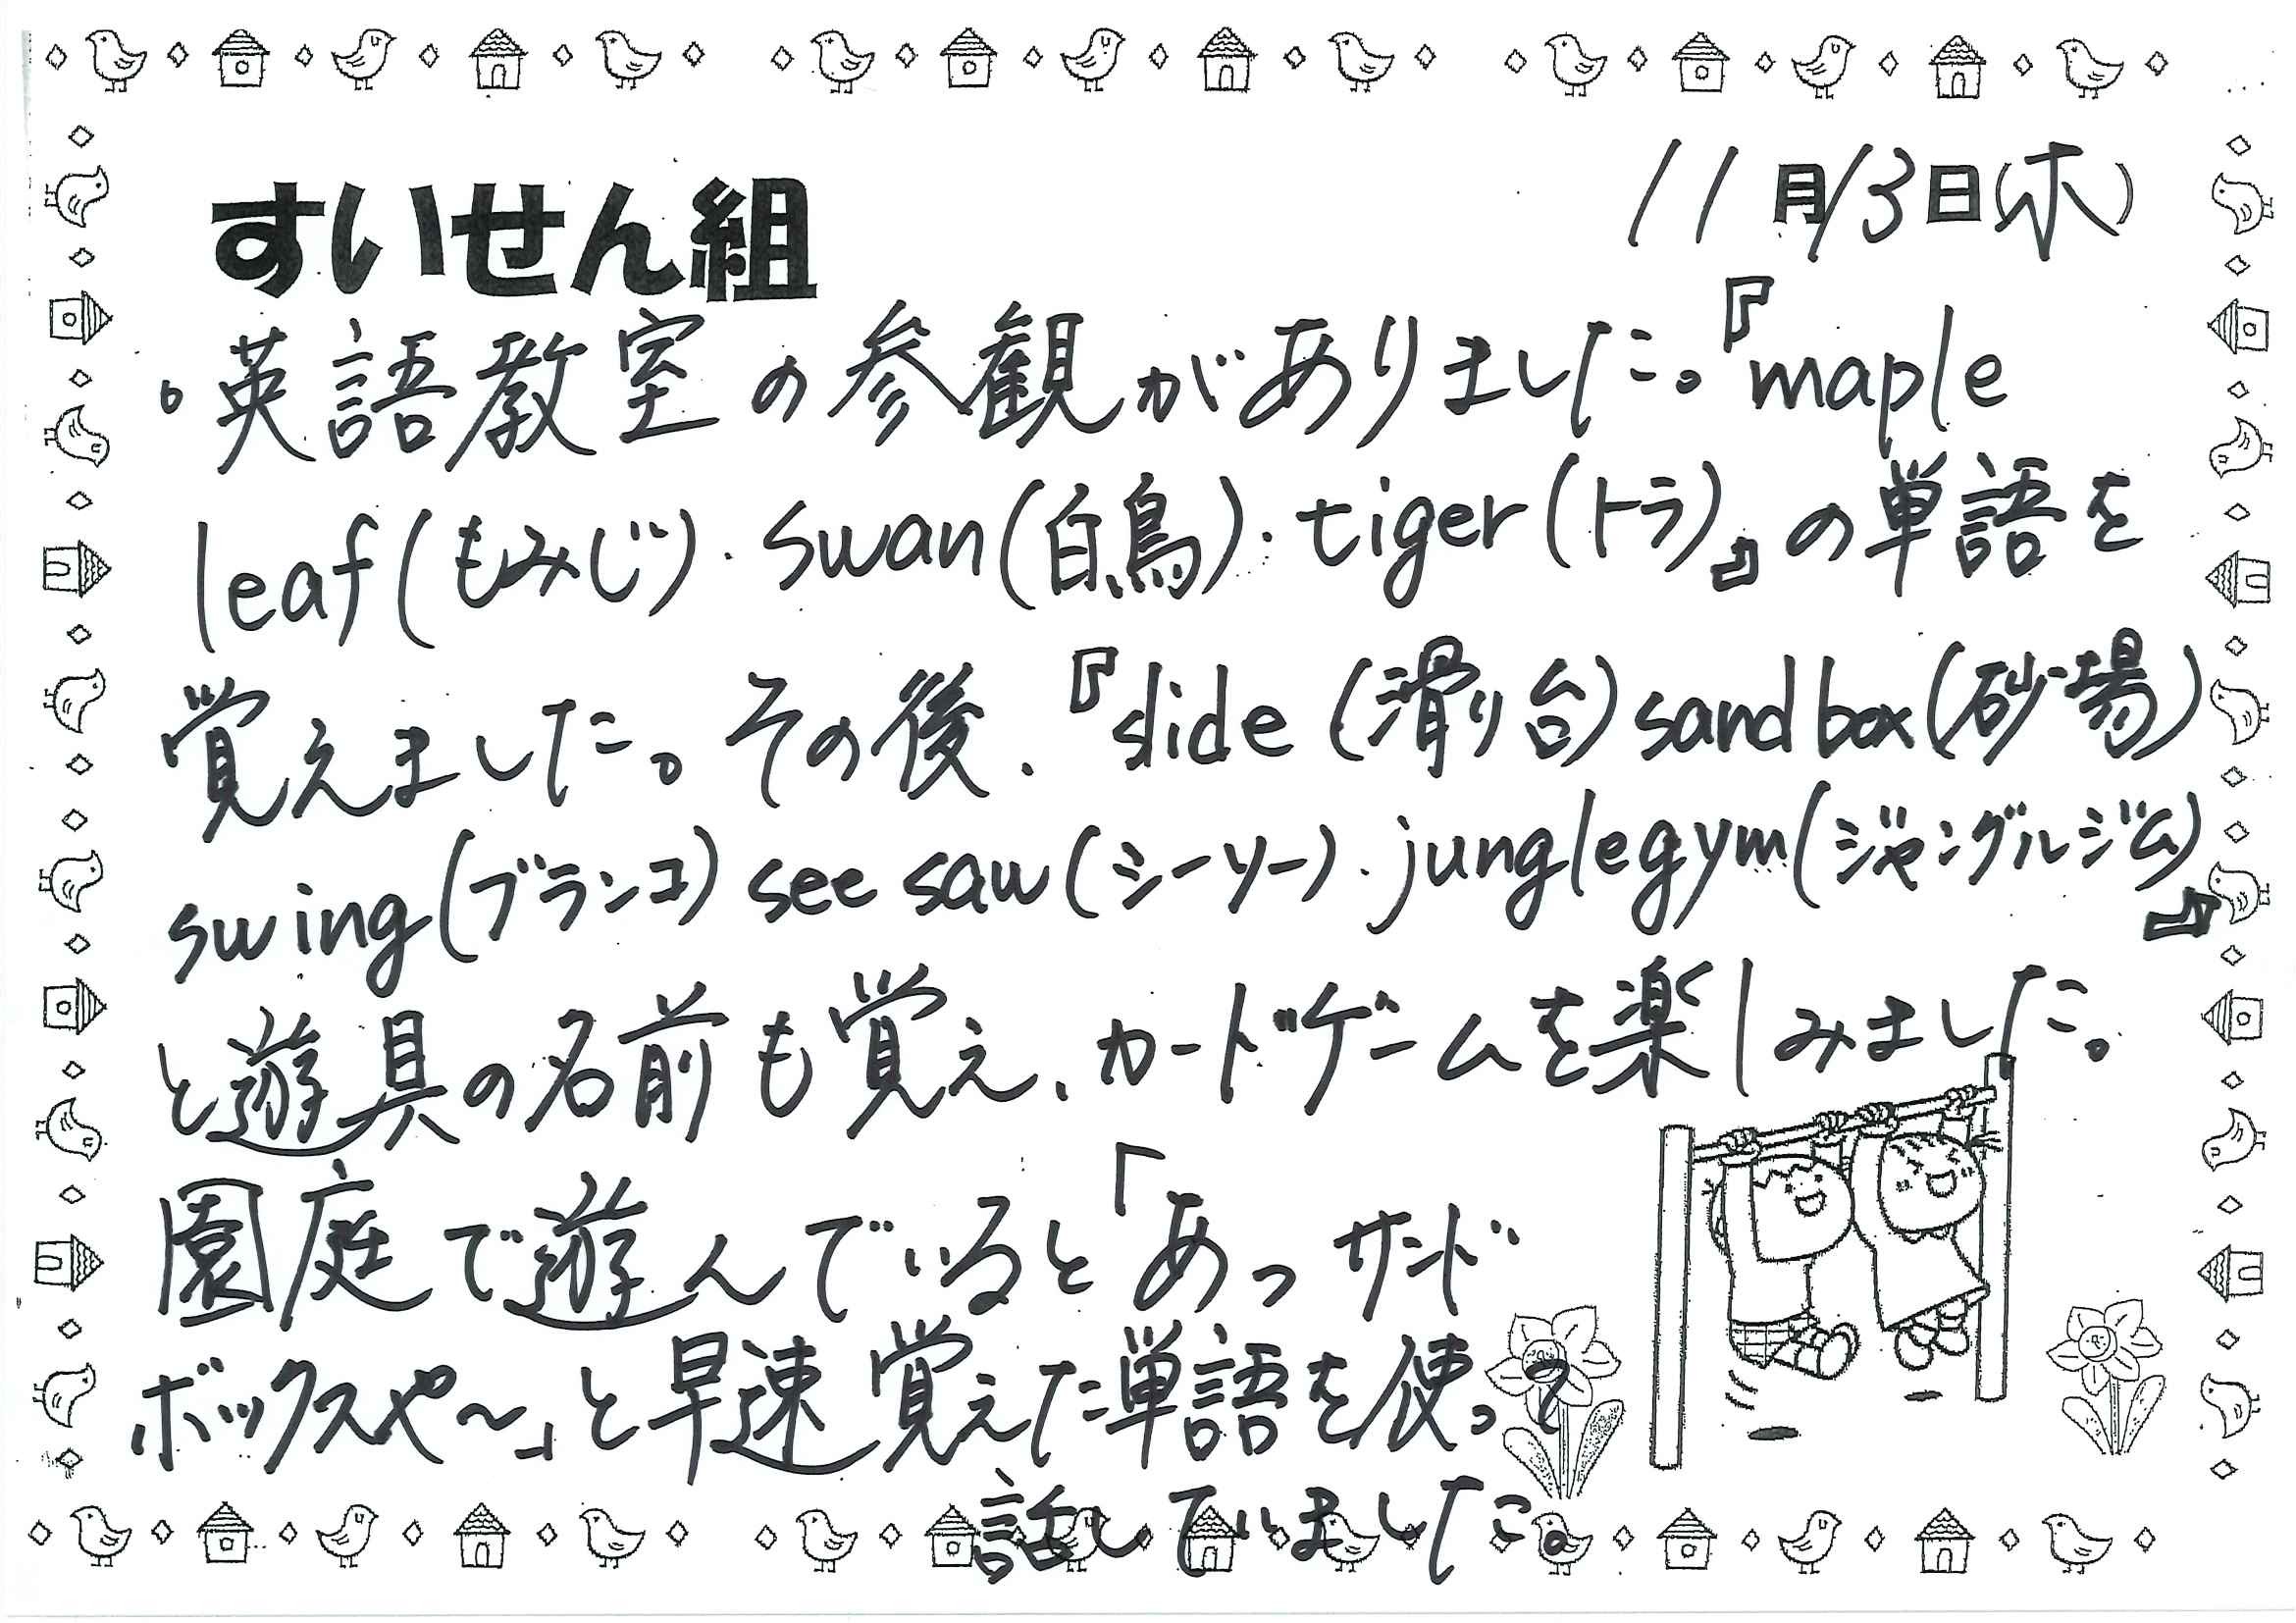 すいせん組
11月13日(木)
。英語教室の参観がありました。『maple
leaf(もみじ)・swan(白鳥)・tiger(トラ)』の単語を
覚えました。その後、『slide(滑り台)sandbox(砂場)
swing(ブランコ)see saw(シーソー)・junglegym(ジャングルジム)』
と遊具の名前も覚え、カードゲームを楽しみました。
園庭で遊んでいると「あっサンド
ボックスや〜」と早速覚えた単語を使って
話していました。